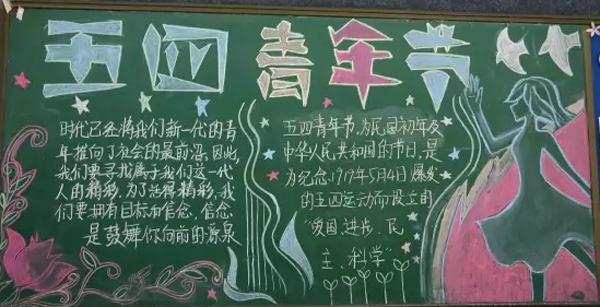 五四青年节
时代已经将我们新一代的青
年推向了社会的最前沿,因此,
我们要寻找属于我们这一代
人的精彩,为了活得精彩,我
们要拥有目标和信念,信念
是鼓舞你向前的源泉
五四青年节,为民国初年及
中华人民共和国的节日,是
为纪念1919年5月4日爆发
的五四运动而设立的
“爱国、进步、民
主、科学”